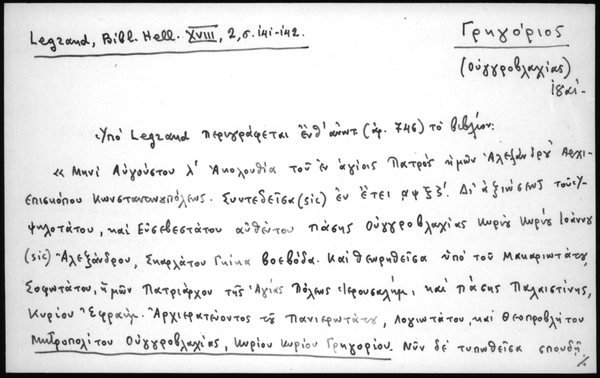 Legrand, Bibl. Hell. XVIII, 2, σ. 141-142.
Γρηγόριος
(Οὑγγροβλαχίας)
Ὑπὸ Legrand περιγράφεται ἔνθ' ἀνωτ (ἀρ. 746) τὸ βιβλίον:
« Μηνὶ Αὐγούστου λ' Ἀκολουθία τοῦ ἐν ἁγίοις Πατρὸς ἡμῶν Ἀλεξάνδρου Ἀρχι-
επισκόπου Κωνσταντινουπόλεως. Συντεθεῖσα (sic) ἐν ἔτει αψξζ'. Δι' ἀξιώσεως τοῦ Ὑ-
ψηλοτάτου, καὶ Εὐσεβεστάτου αὐθέντου πάσης Οὑγγροβλαχίας Κυρίου Κυρίου Ἰωάννου
(sic) Ἀλεξάνδρου, Σκαρλάτου Γκίκα βοεβόδα. Καὶ θεωρηθεῖσα ὑπὸ τοῦ Μακαριωτάτου,
Σοφωτάτου, ἡμῶν Πατριάρχου τῆς Ἁγίας Πόλεως Ἱερουσαλήμ, καὶ πάσης Παλαιστίνης,
Κυρίου Ἐφραίμ. Ἀρχιερατεύοντος τοῦ Πανιερωτάτου, Λογιωτάτου, καὶ Θεοπροβλήτου
Μητροπολίτου Οὑγγροβλαχίας, Κυρίου Κυρίου Γρηγορίου. Νῦν δὲ τυπωθεῖσα σπουδῇ
./.